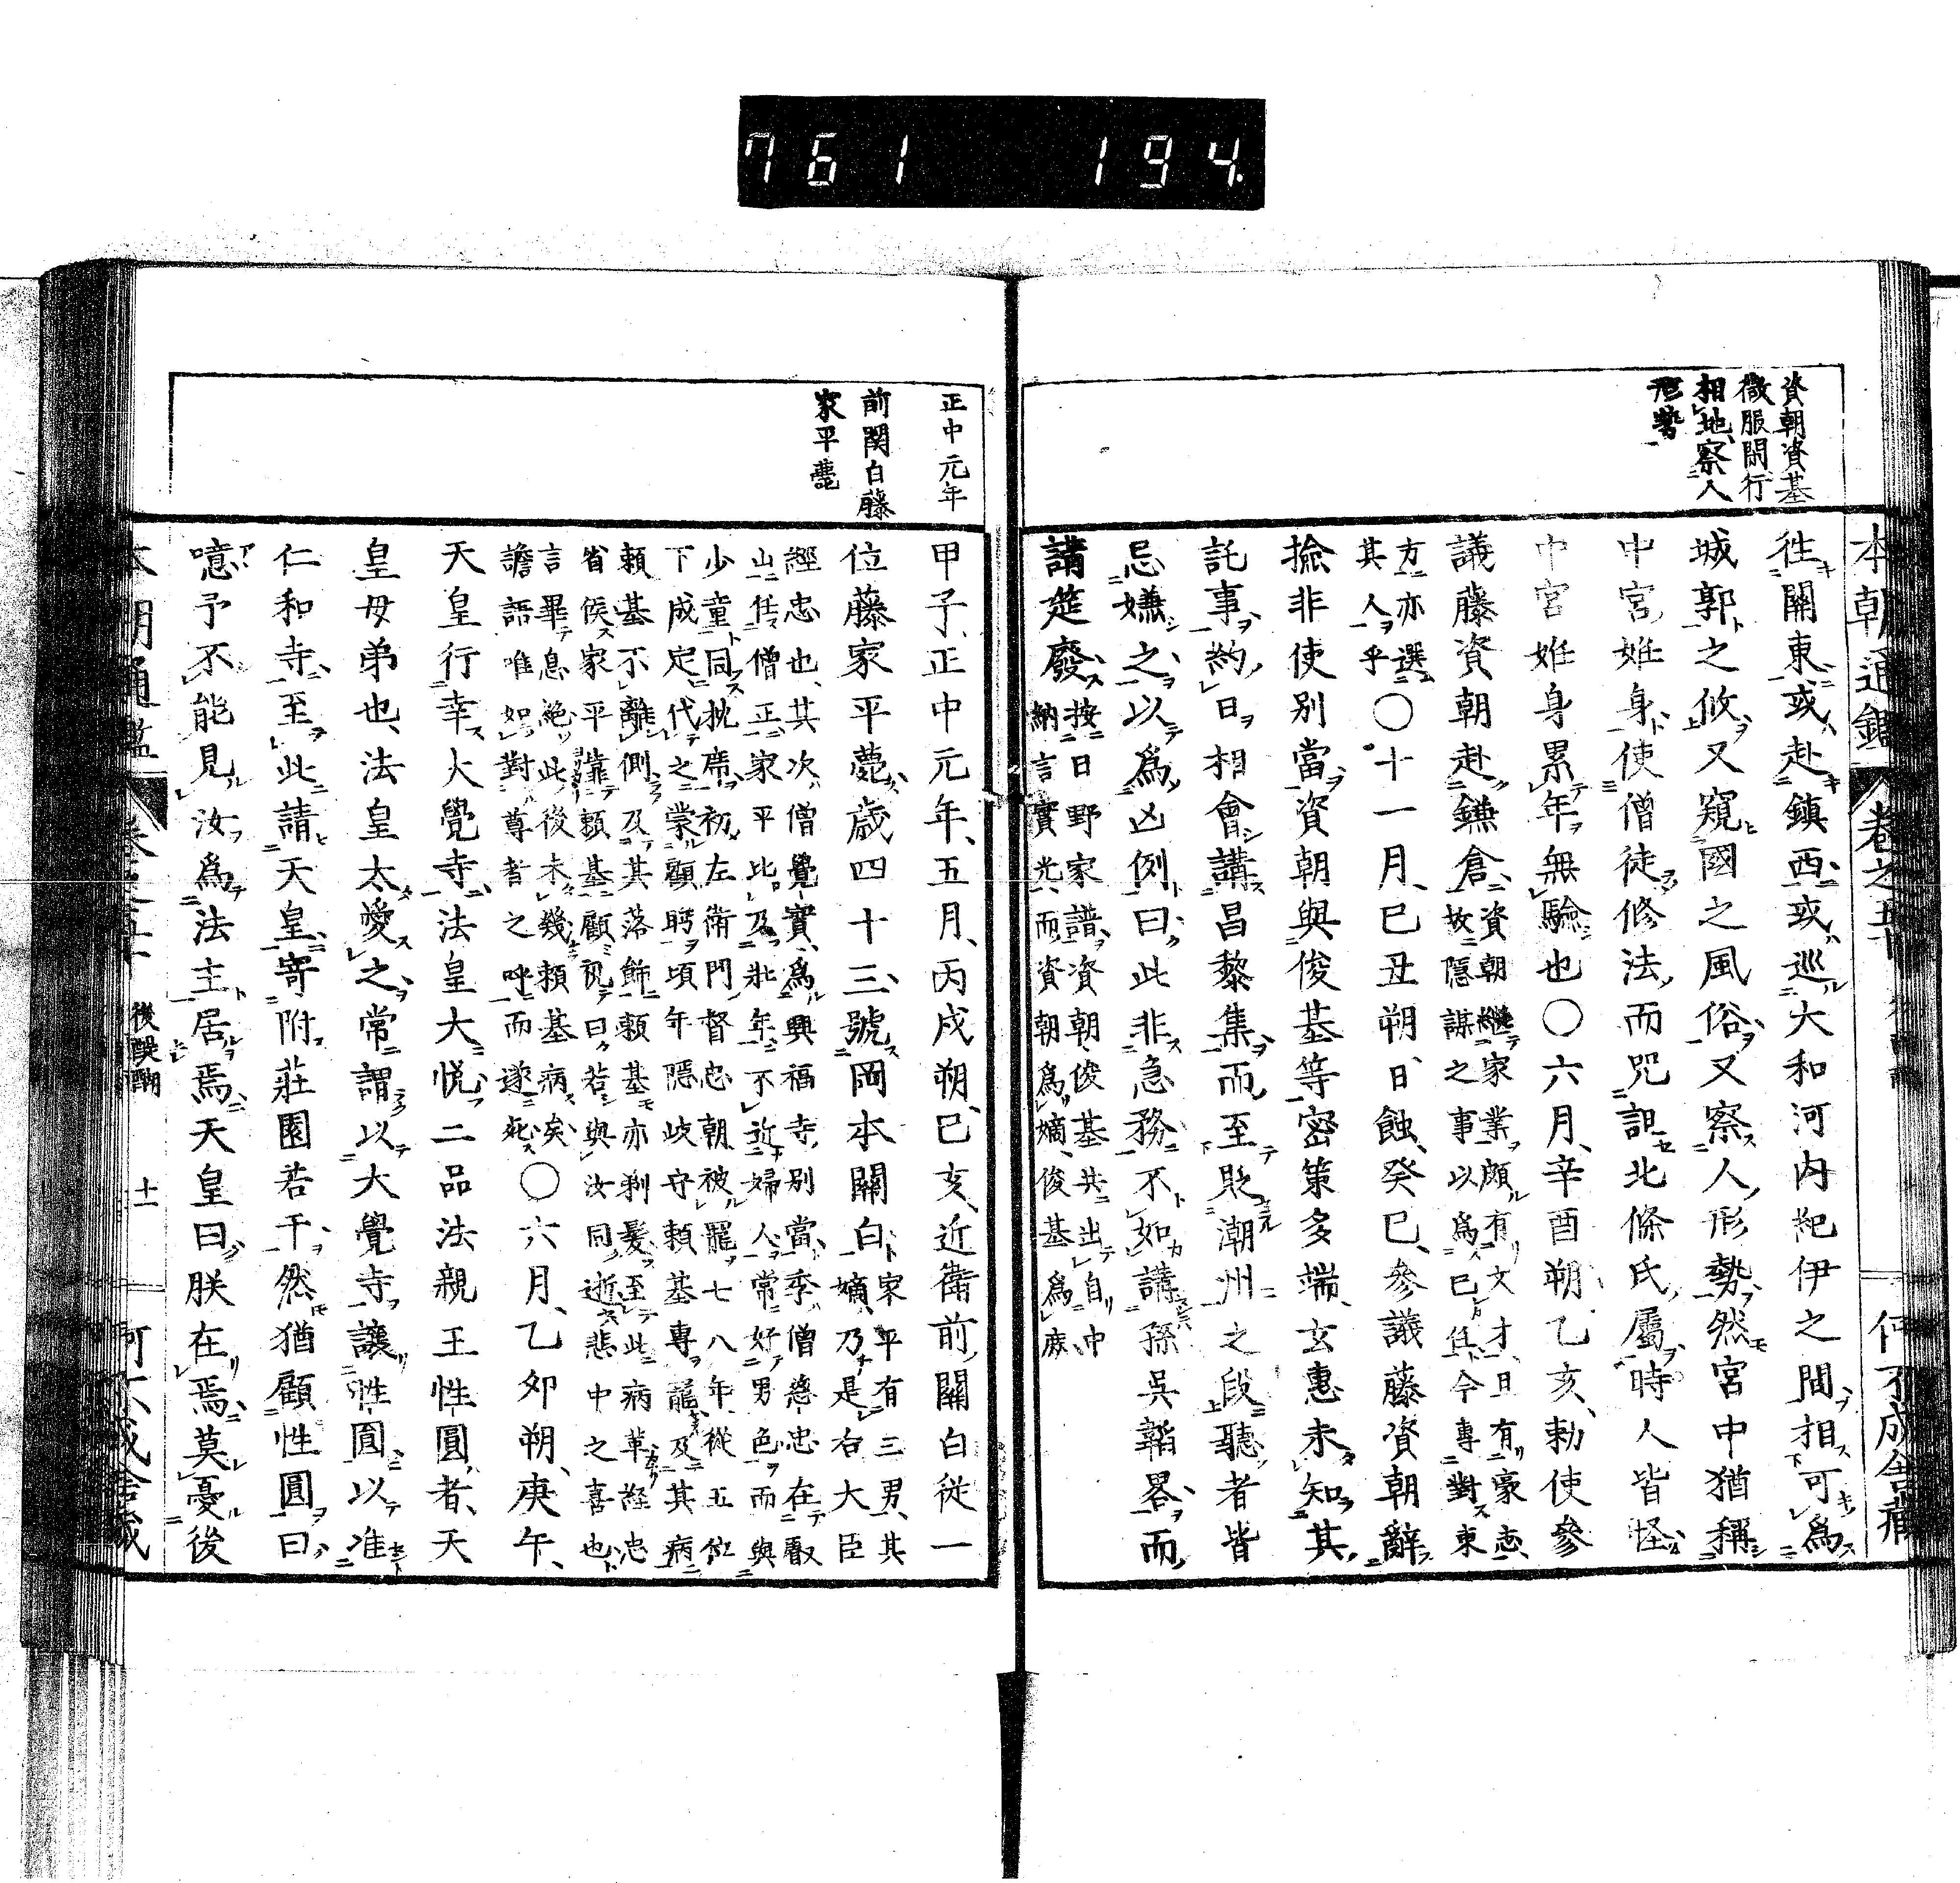 761 194
資朝資基
微服閒行
相地察人
形勢
徃關東或赴鎮西或巡大和河内紀伊之間相可爲
城郭之攸又窺國之風俗又察人形勢然宮中猶稱
中宮姙身使僧徒修法而咒詛北條氏屬時人皆怪
中宮姙身累年無驗也〇六月辛酉朔乙亥勅使參
議藤資朝赴鎌倉
資朝繼家業頗有文才且有豪志
故隱謀之事以爲己任今專對東
方亦選
其人乎
〇十一月己丑朔日蝕癸巳參議藤資朝辭
撿非使別當資朝與俊基等密策多端玄惠未知其
託事約日相會講昌黎集而至貶潮州之段聽者皆
忌嫌之以爲凶例曰此非急務不如講孫吳韜畧而
講筵廢
按日野家譜資朝俊基共出自中
納言實光而資朝爲嫡俊基爲庶
正中元年
前関白藤
家平薨
甲子正中元年五月丙戌朔己亥近衛前關白從一
位藤家平薨歲四十三號岡本關白
家平有三男其
嫡乃是右大臣
經忠也其次僧覺實爲興福寺別當季僧慈忠在叡
山任僧正家平比及壯年不近婦人常好男色而與
少童同枕席初左衛門督忠朝被寵七八年從五位
下成定代之業顧眄頃年隱岐守賴基專寵及其病
賴基不離側及其落飾賴基亦剃髮至此病革經忠
省候家平靠賴基顧視曰若與汝同逝悲中之喜也
言畢息絶此後未幾賴基病矣
譫語唯如對尊者之呼而遂死
〇六月乙卯朔庚午
天皇行幸大覺寺法皇大悦二品法親王性圓者天
皇母弟也法皇太愛之常謂以大覺寺讓性圓以准
仁和寺至此請天皇寄附莊園若干然猶顧性圓曰
噫予不能見汝爲法主居焉天皇曰朕在焉莫憂後
後醍醐 十一